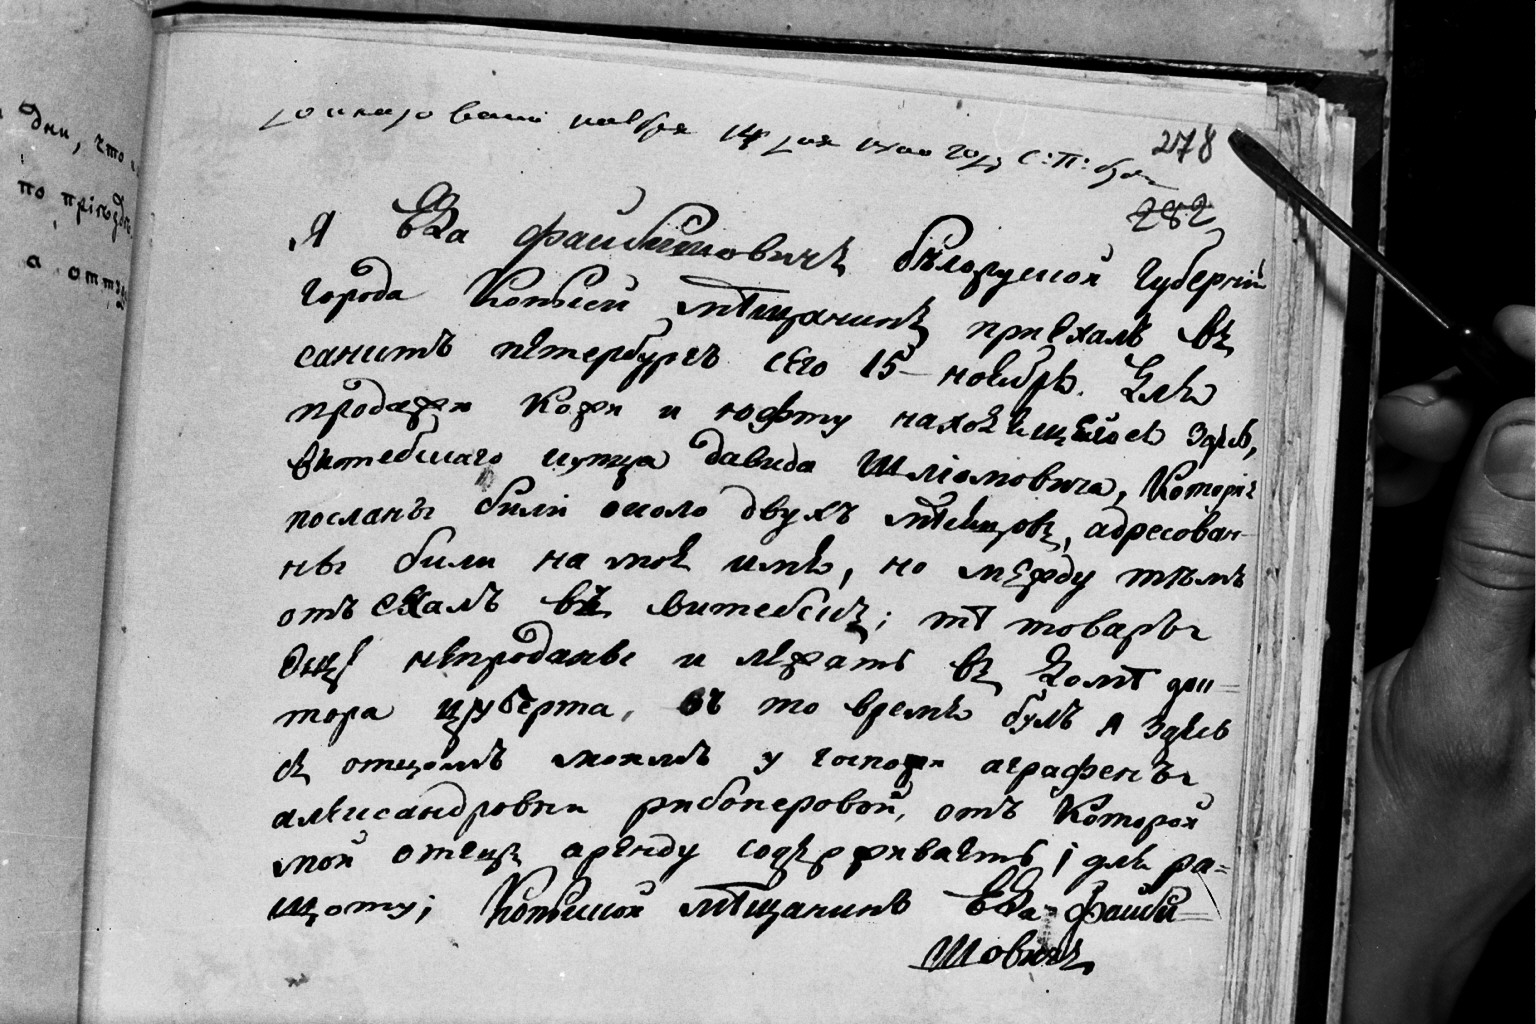 дни, что
по приѣздѣ
а оттуда
ноября 14 дня 1800 году С: П: бург
278
282
Я Ева Файбишовичъ бѣлоруской Губерній
города Копыси мѣщанинъ приехалъ въ
санктъ петербургъ сего 15 ноября. для
продажи кожи и юфту находящееся здѣсь,
витебскаго купца давида Шліомовича, Которіи
посланы були около двухъ мѣсяцовъ, адресован-
ны були на мое имя, но между тѣмъ
отъехалъ въ витебскъ; тѣ товары
еще непроданы и лежатъ въ домѣ док=
тора цуберта, въ то время булъ я здѣсь
съ отцомъ моимъ у госпожи аграфены
александровни рибоперовой, отъ Которой
мой отецъ аренду содерживаетъ і для ра=
щоту; Копиской мѣщанинъ Ева Файби=
Шовичъ